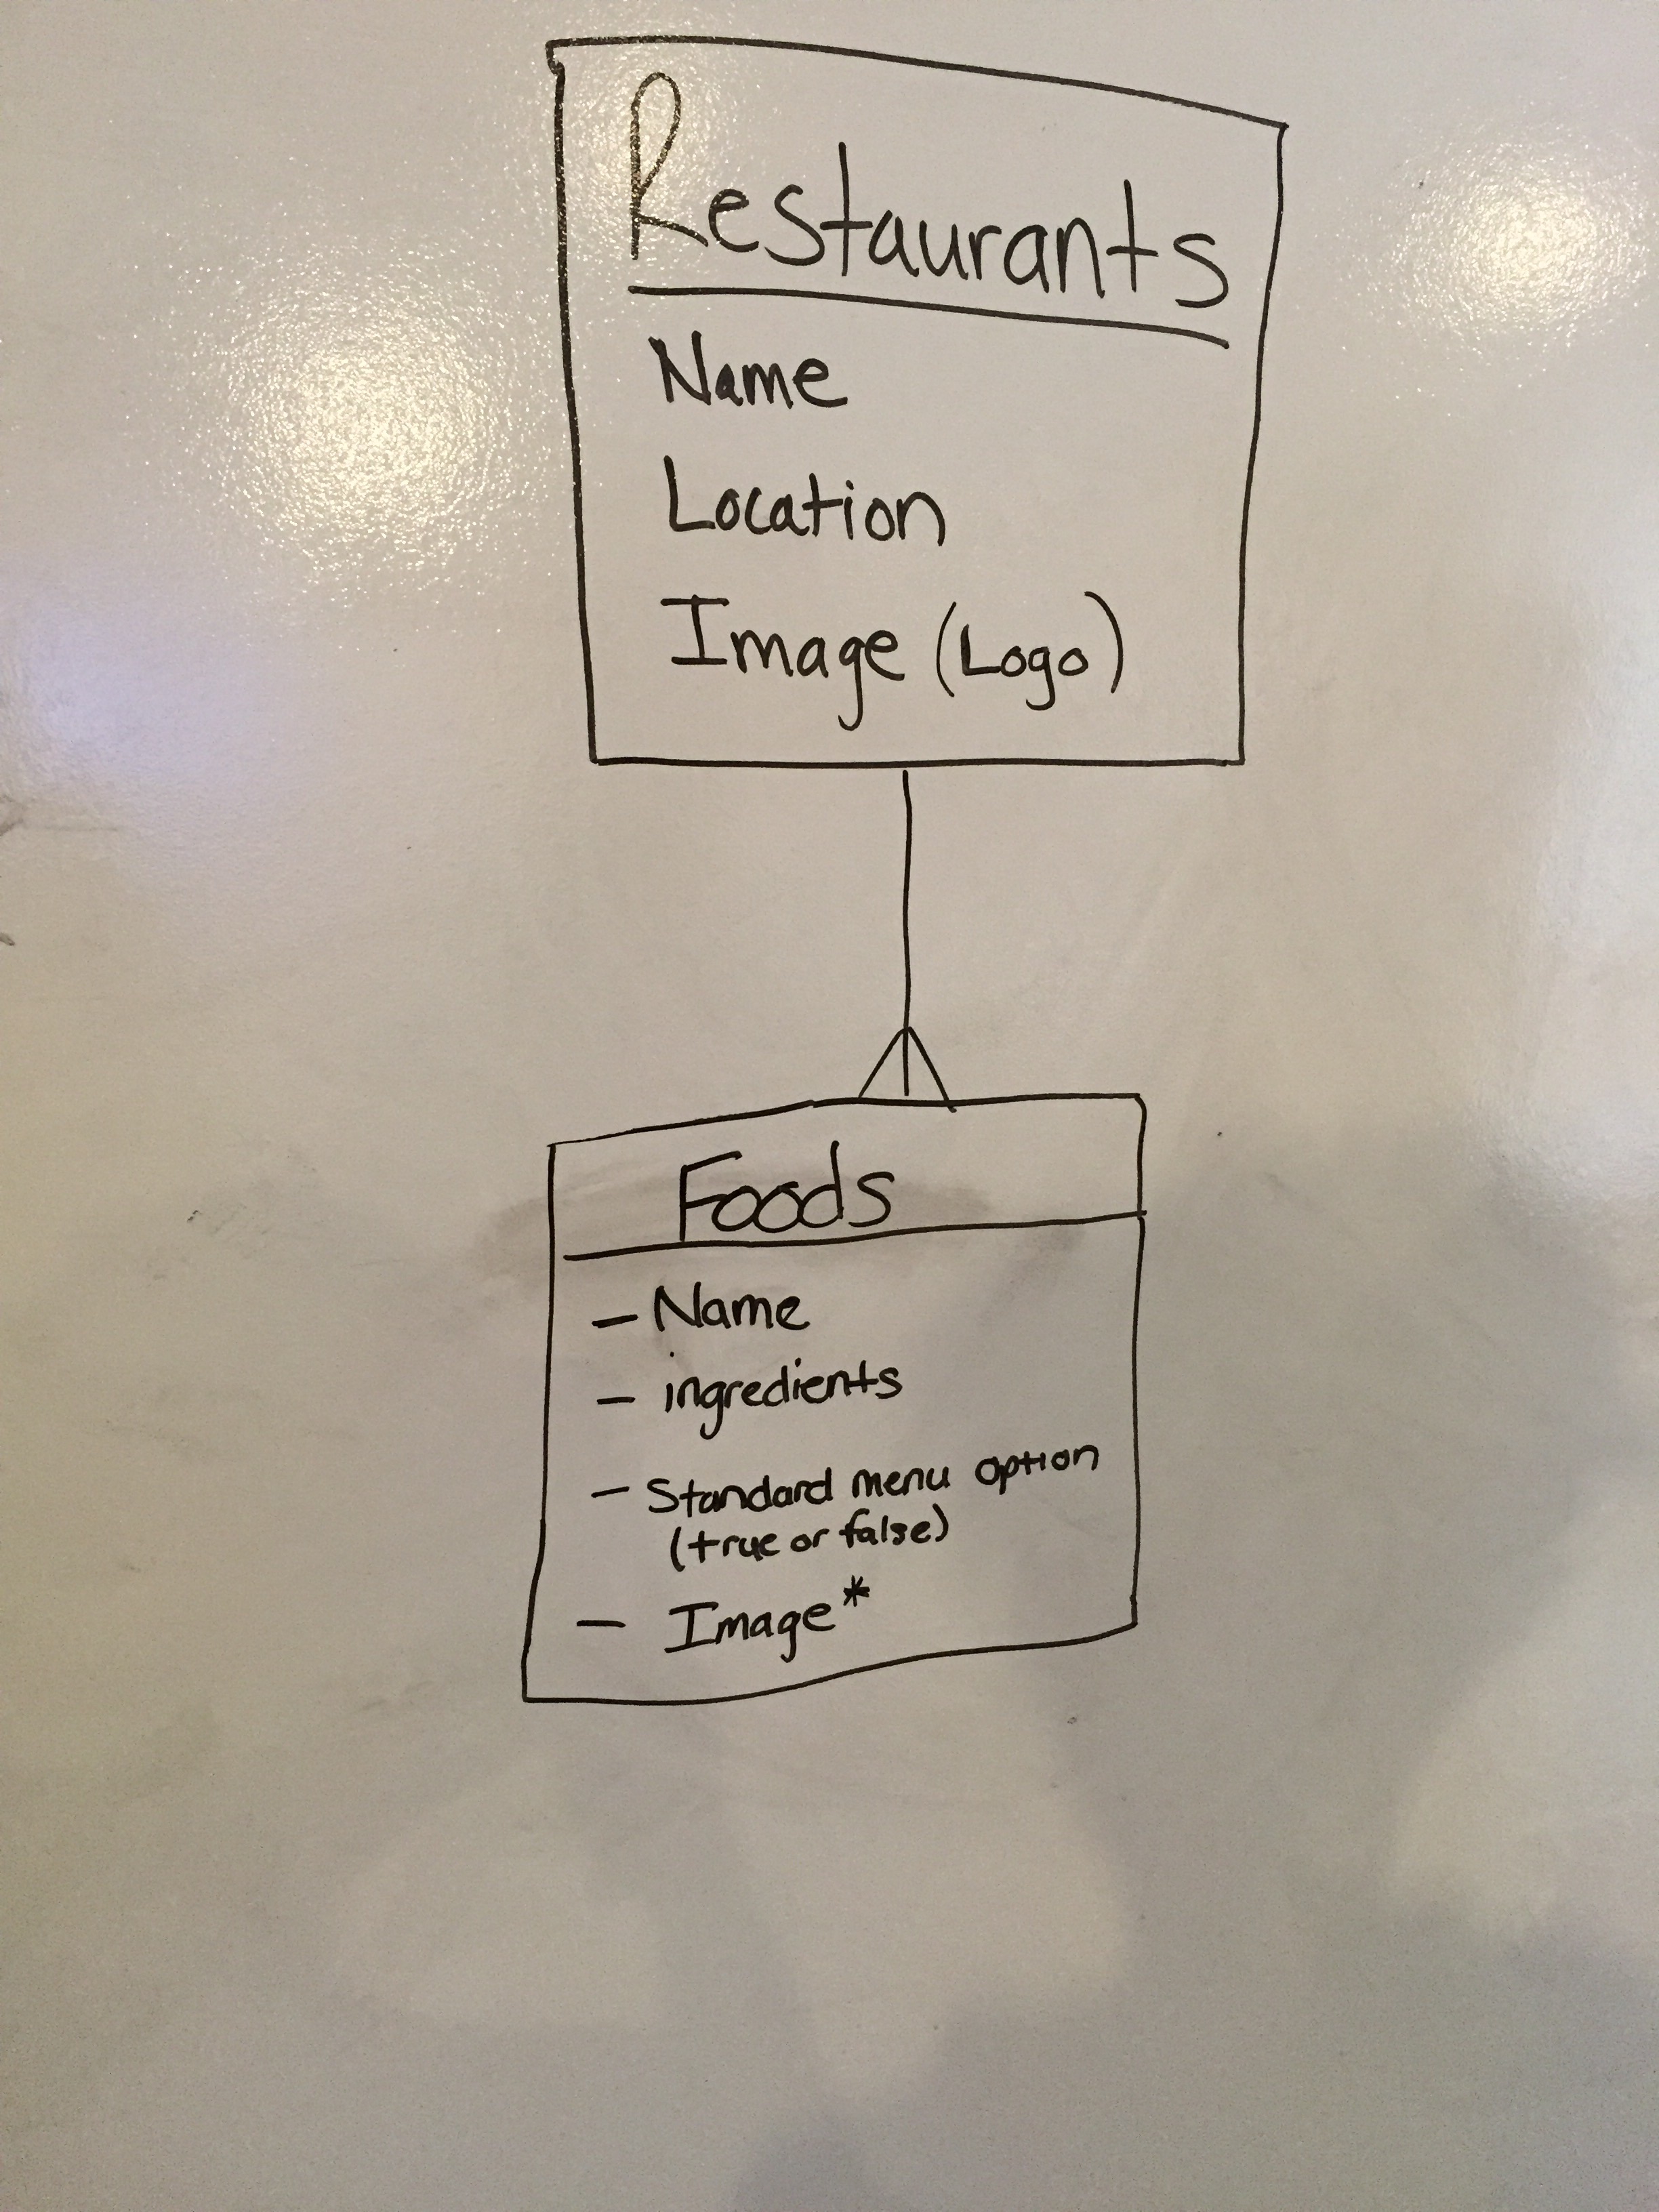 Restaurants
Name
Location
Image (Logo)
Foods
- Name
- ingredients
- Standard menu option
(true or false)
- Image*